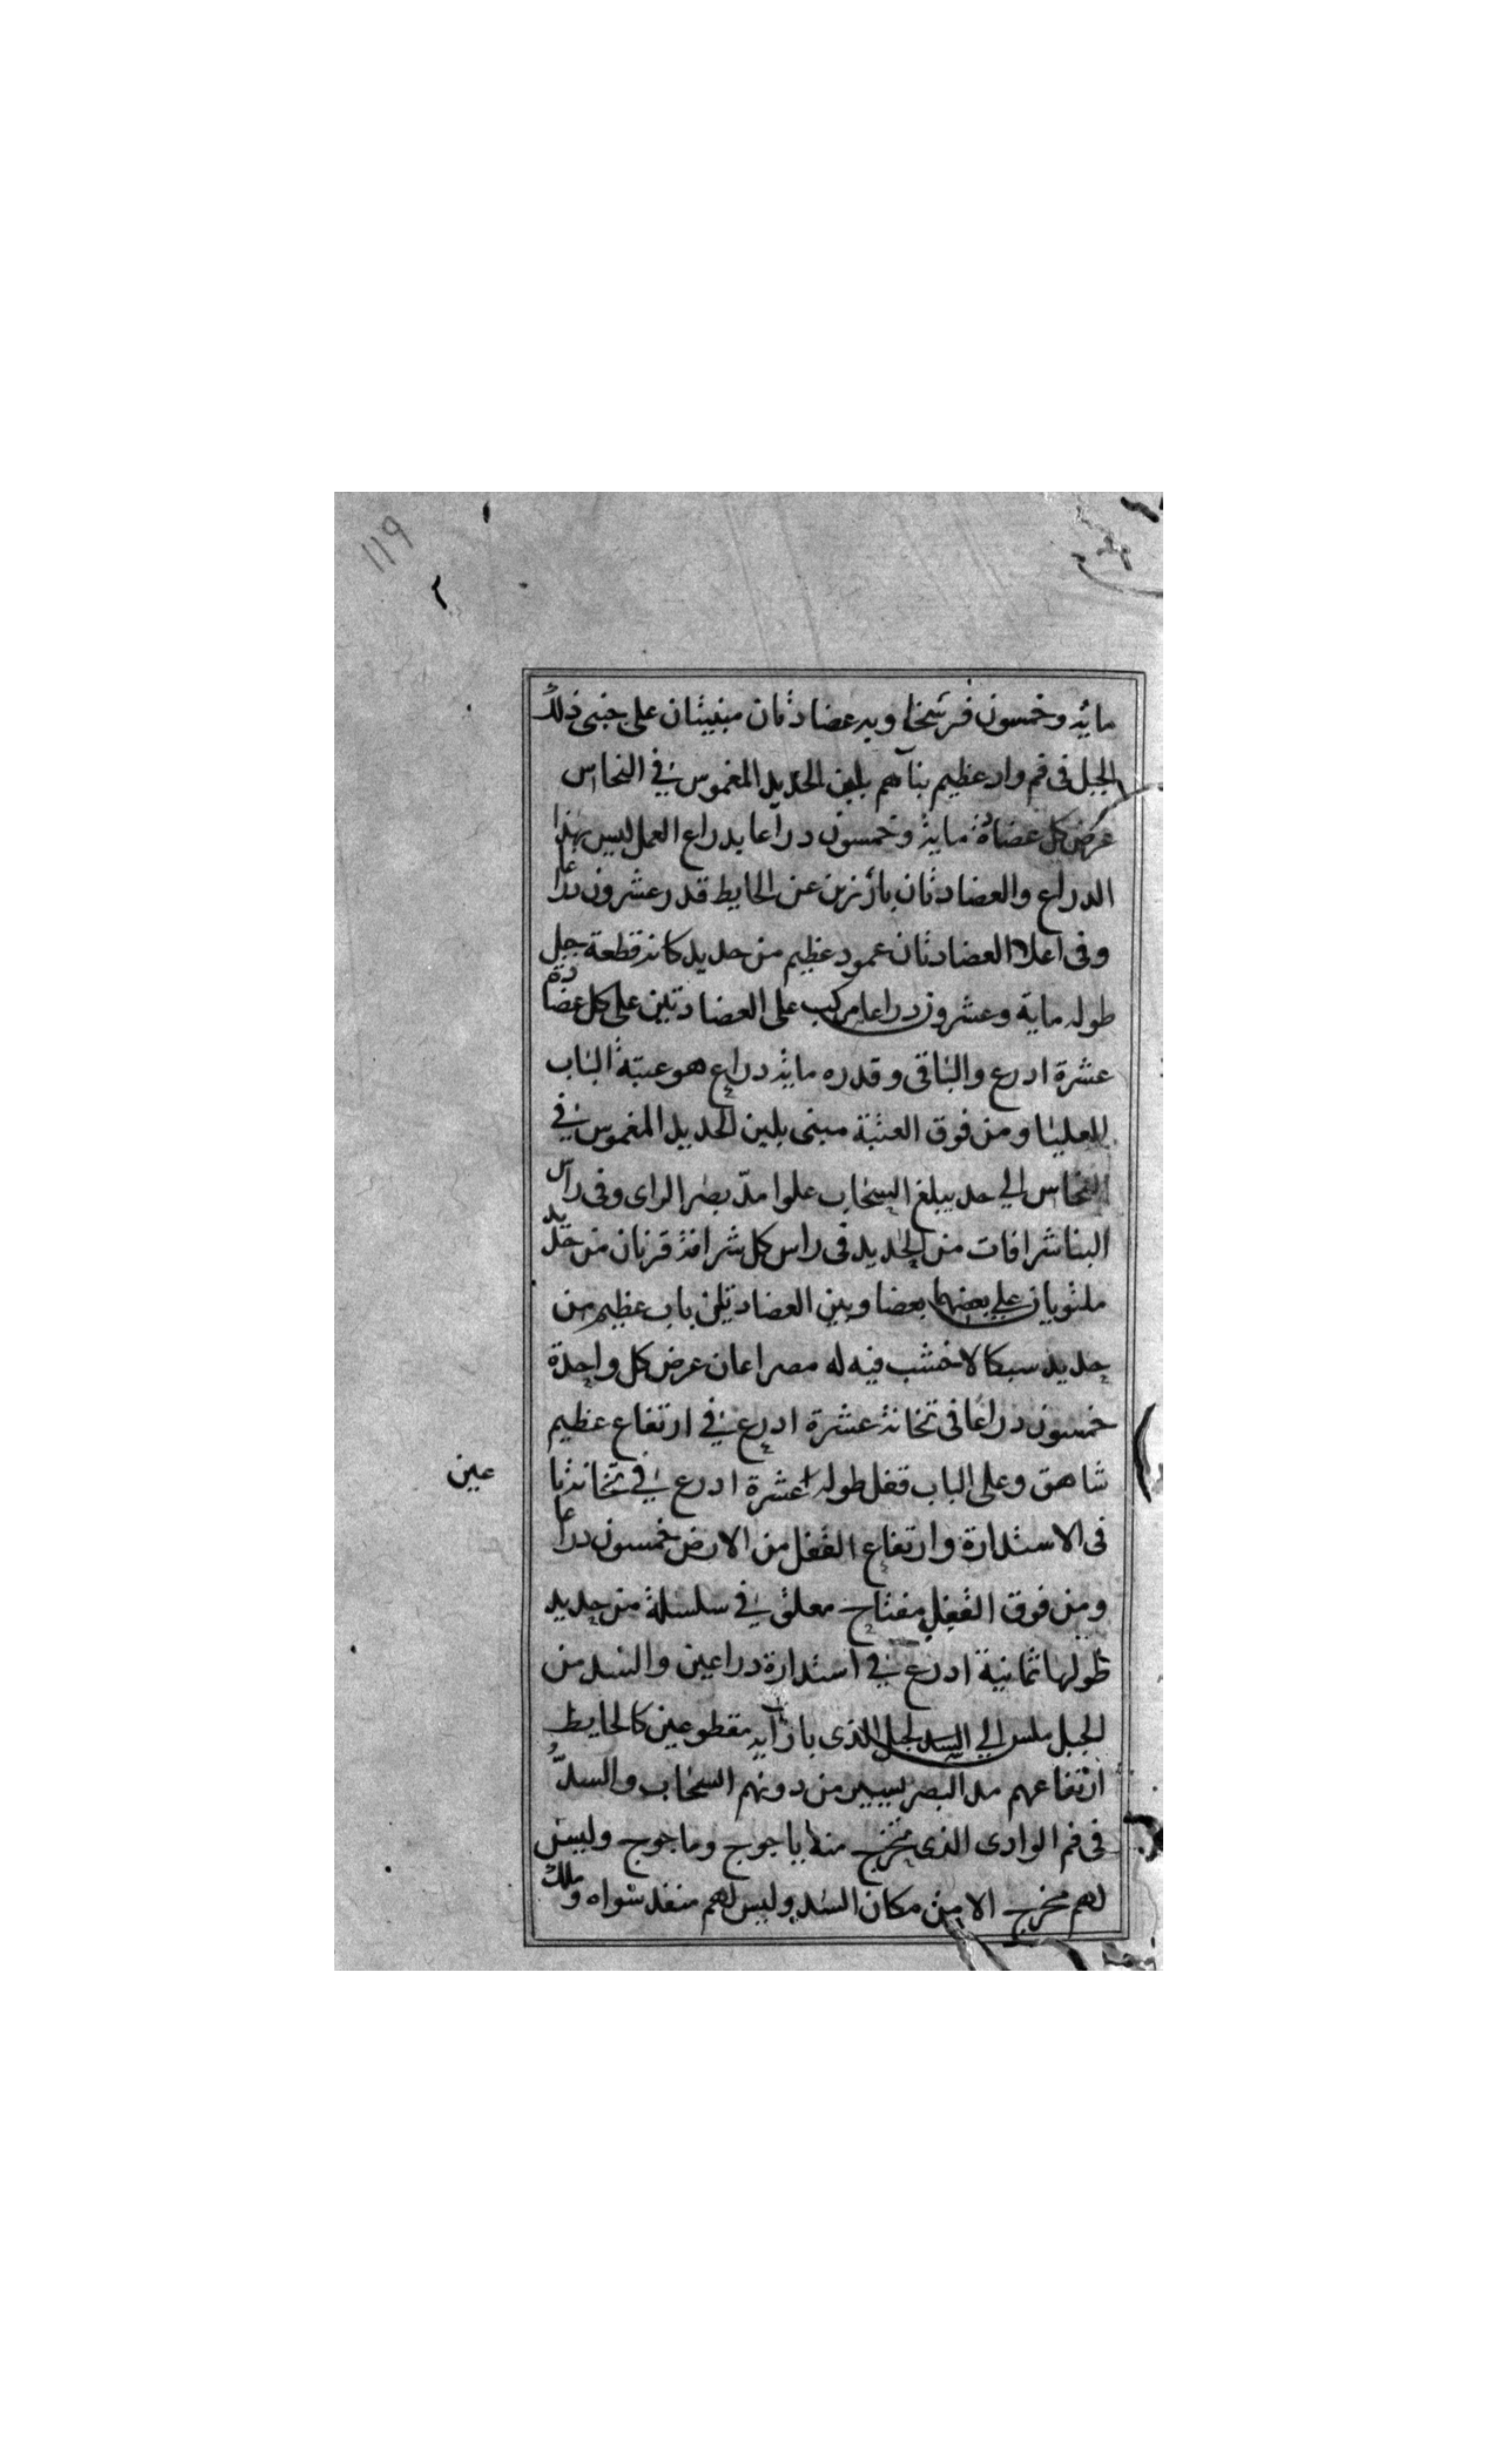 119
مايه وخمسون فرسخا وبه عضادتان مبنيتان على جنبى ذلك
الجبل فى فم واد عظيم بناهم بلبن الحديد المغموس في النحاس
عرض كل عضادة مايه وخمسون دراعا بدراع العمل ليس بهذا
الدراع والعضادتان بارزين عن الحايط قدر عشرون دراعا
وفى اعلا العضادتان عمود عظيم من حديد كانه قطعة جبل
طوله ماية وعشرون دراعا مركب على العضادتين على كل عضادة
عشرة ادرع والباقى وقدره مايه دراع هو عتبة الباب
العليا ومن فوق العتبة مبنى بلبن الحديد المغموس في
النحاس الي حد يبلغ السحاب علوا مدّ بصر الراى وفى راس
البنا شرافات من الحديد فى راس كل شرافه قرنان من حديد
ملتويان على بعضهما بعضا وبين العضادتين باب عظيم من
حديد سبكا لا خشب فيه له مصراعان عرض كل واحدة
خمسون دراعا فى تخانة عشرة ادرع في ارتفاع عظيم
شاهق وعلى الباب قفل طوله عشرة ادرع في تخانه با
عين
فى الاستدارة وارتفاع القفل من الارض خمسون دراعا
ومن فوق القفل مفتاح معلق في سلسلة من حديد
طولها ثمانية ادرع في استدارة دراعين والسد من
الجبل ملس الي السد لجبل الذى بازايه مقطوعين كالحايط
ارتفاعهم مد البصر يسير من دونهم السحاب والسدّ
فى فم الوادى الذى يخرج منه ياجوج وماجوج وليس
لهم مخرج الا من مكان السد وليس لهم منفد سواه وملك